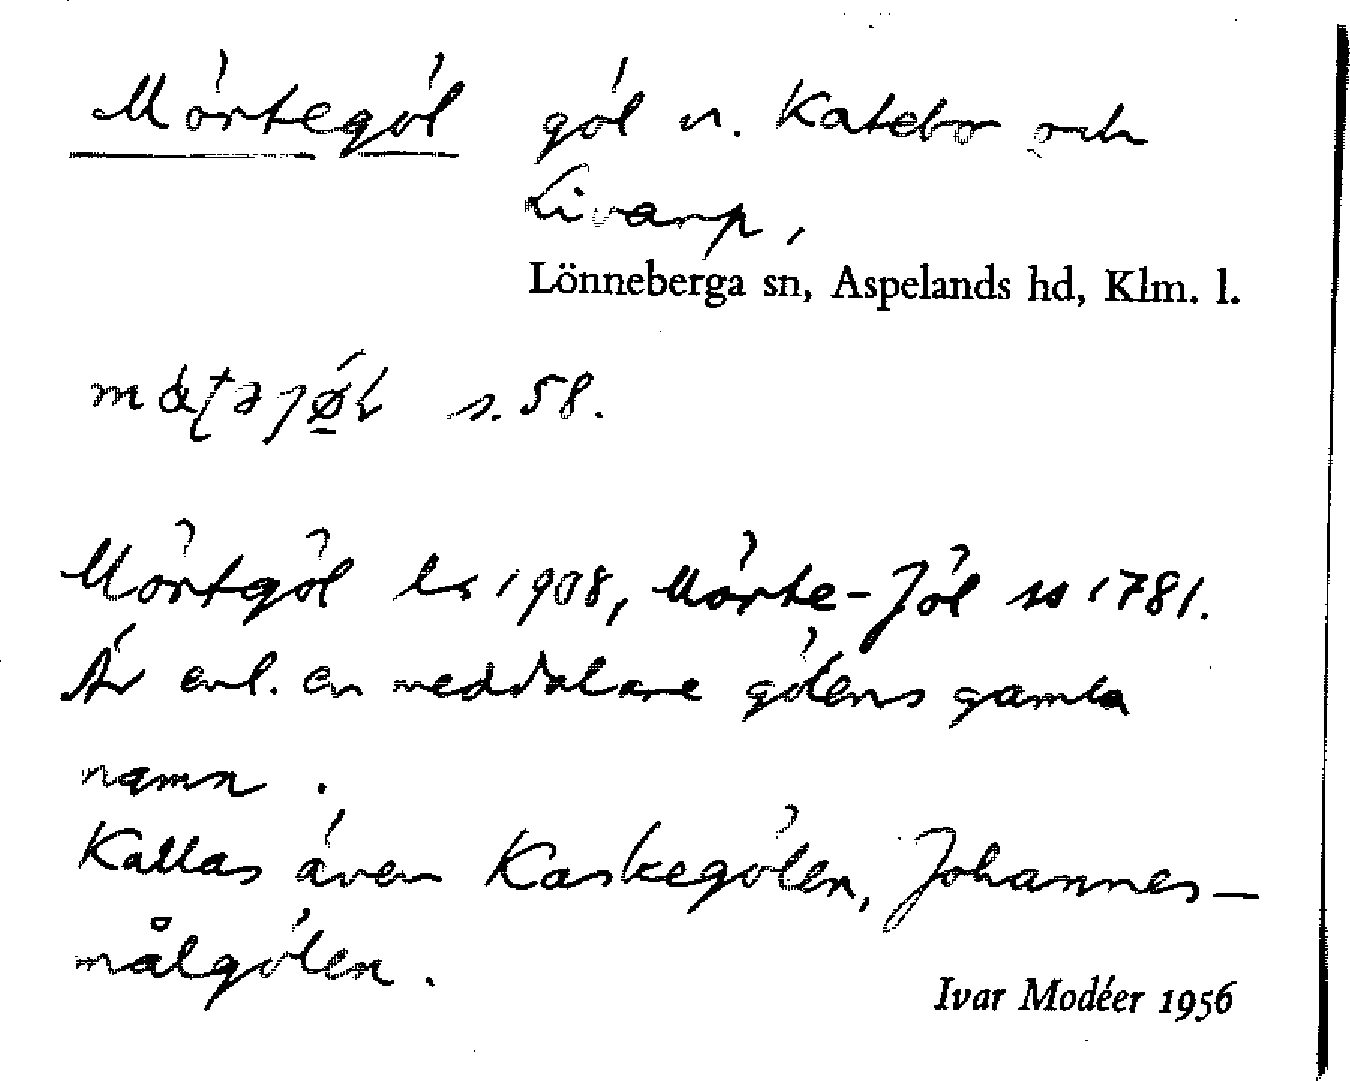 Mörtegöl göl n. Katebo och
Livarp,
Lönneberga sn, Aspelands hd, Klm. l.
s. 58.
Mörtgöl ls 1908, Mörte-Jöl ss 1781.
Är enl. en meddelare gölens gamla
namn.
Kallas även Kaskegölen, Johannes-
målgölen.
Ivar Modéer 1956